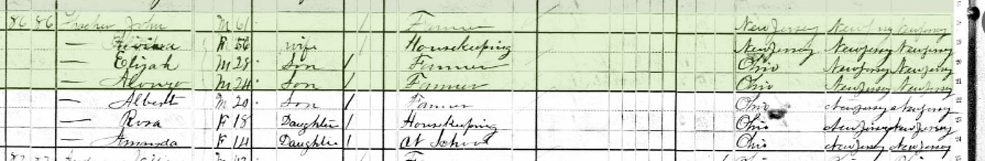 86 86 John M 61 / Farmer New Jersey New Jersey New Jersey
— F 56 wife Housekeeping New Jersey New Jersey New Jersey
— Elijah M 28 Son / Farmer Ohio New Jersey New Jersey
— Alonzo M 24 Son / Farmer Ohio New Jersey New Jersey
— Albert M 20 Son / Farmer Ohio New Jersey New Jersey
— Rosa F 18 Daughter / Housekeeping Ohio New Jersey New Jersey
— Amanda F 14 Daughter / At School Ohio New Jersey New Jersey